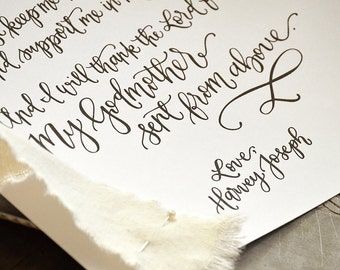 keep me
and support me in
And I will thank the Lord
My Godmother
sent from above.
Love,
Harvey Joseph